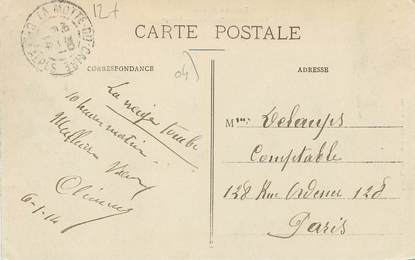 12+
LA MOTTE-DU-CAIRE
CARTE POSTALE
CORRESPONDANCE
ADRESSE
04
La neige tombe
10 heures matin
Meilleurs
6-1-14
Mme Delaups
Comptable
128 Rue Ordener 128
Paris